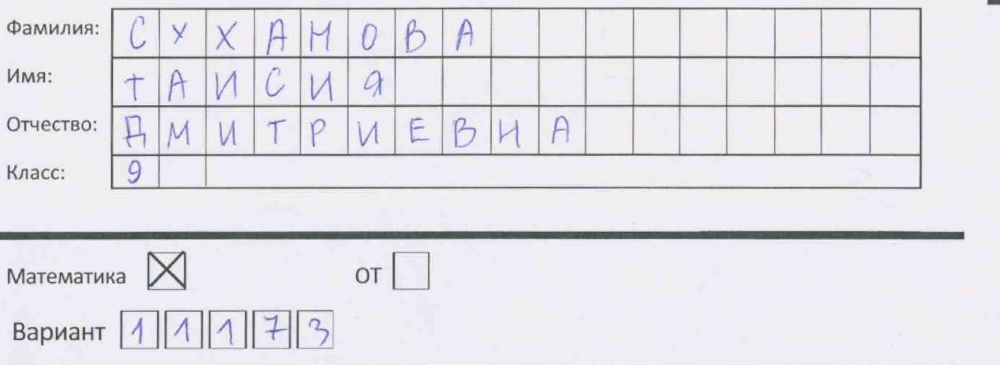 Фамилия: СУХАНОВА
Имя: ТАИСИЯ
Отчество: ДМИТРИЕВНА
Класс: 9
Математика ☒ ОТ ☐
Вариант 11173